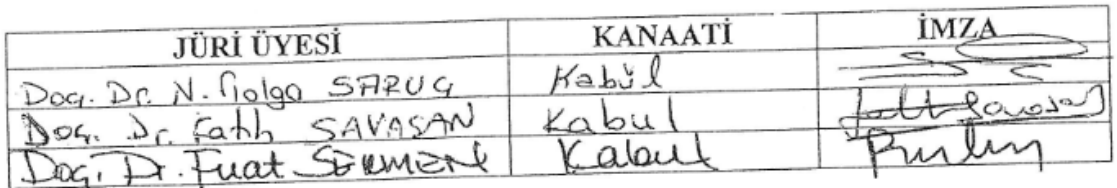 JÜRİ ÜYESİ KANAATİ İMZA
Doç. Dr. N. Tolga SARUÇ Kabül
Doç. Dr. Fatih SAVAŞAN Kabul
Doç. Dr. Fuat Kabul